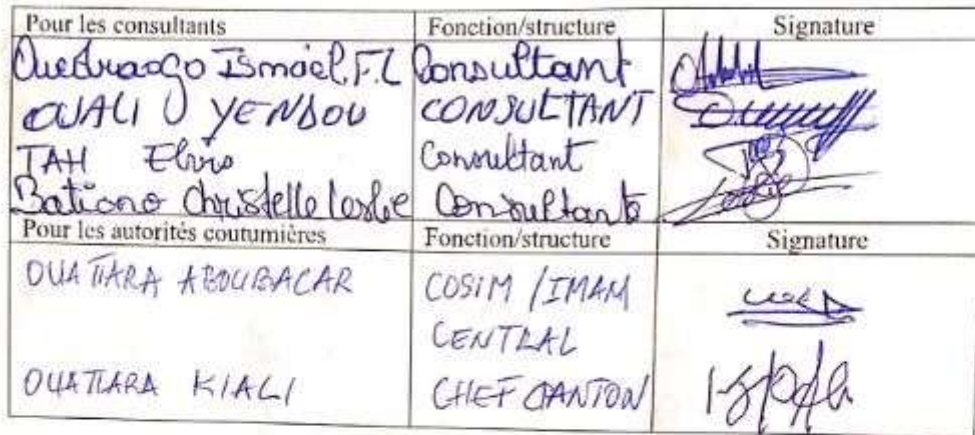 Pour les consultants Fonction/structure Signature
Ouedraogo Ismael.F.L Consultant
OUALI U YENDOU CONSULTANT
TAH Elvis Consultant
Bationo Christelle Leslie Consultante
Pour les autorités coutumières Fonction/structure Signature
OUATTARA ABOUBACAR COSIM /IMAM
CENTRAL
OUATTARA KIALI CHEF CANTON